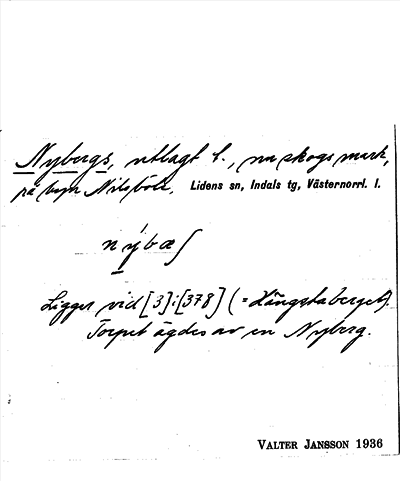 Nybergs, utlagt t., nu skogsmark,
på byn Nilsböle. Lidens sn, Indals tg, Västernorrl. l.
nýbæʃ
Ligger vid [3]:[378] (= Långstaberget).
Torpet ägdes av en Nyberg.
VALTER JANSSON 1936